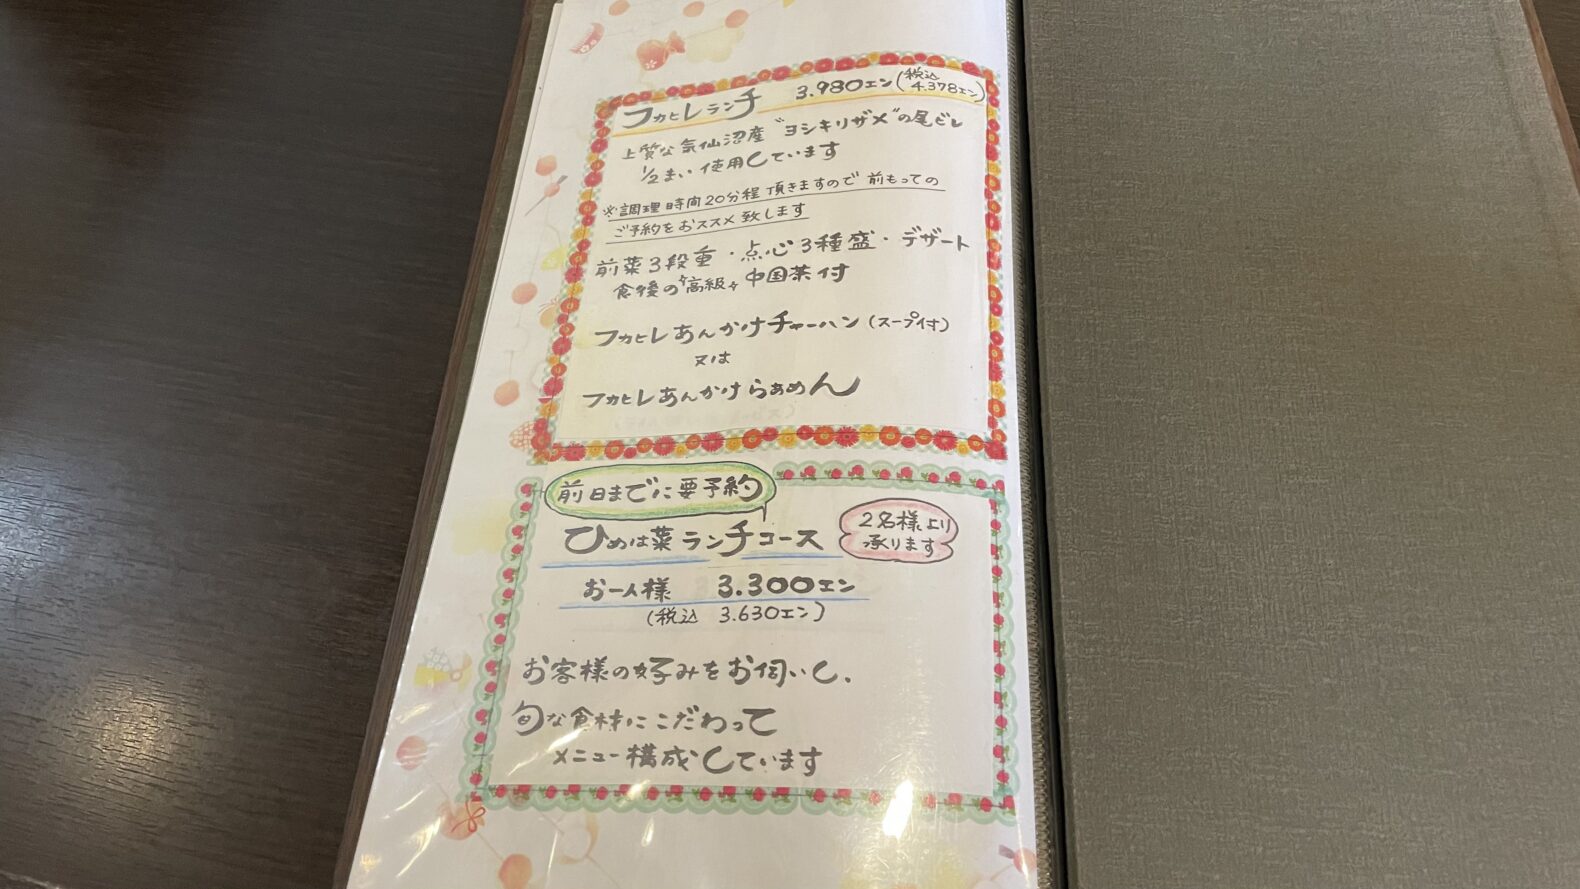 フカヒレランチ 3.980エン(税込 4.378エン)
上質な気仙沼産"ヨシキリザメ"の尾ビレ
1/2まい使用しています
※調理時間20分程頂きますので前もっての
ご予約をおススメ致します
前菜3段重・点心3種盛・デザート
食後の"高級"中国茶付
フカヒレあんかけチャーハン(スープ付)
又は
フカヒレあんかけらぁめん
前日までに要予約
ひめは菜ランチコース
2名様より
承ります
お一人様 3.300エン
(税込 3.630エン)
お客様の好みをお伺いし、
旬な食材にこだわって
メニュー構成しています